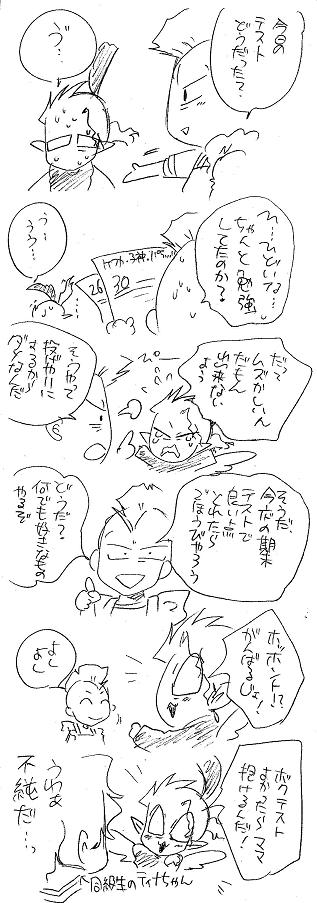 今日の
テスト
どうだった?
ゔ…
ひ…ひどいな…
ちゃんと勉強
してたのか?
26
30
う…
うう…
だって
ムズかしいん
だもん
出来ない
よう
ぴー
そうやって
投げやりに
するから
ダメなんだ
そうだ
今度の期末
テストで
良い点
とれたら
ごほうびやろう
どうだ?
何でも好きなもの
やるぞ
ホッホント!?
がんばるじょ!
よし
よし
ボクテスト
よかったらママ
抱けるんだ!
うわぁ
不純だ…っ
↑同級生のティナちゃん